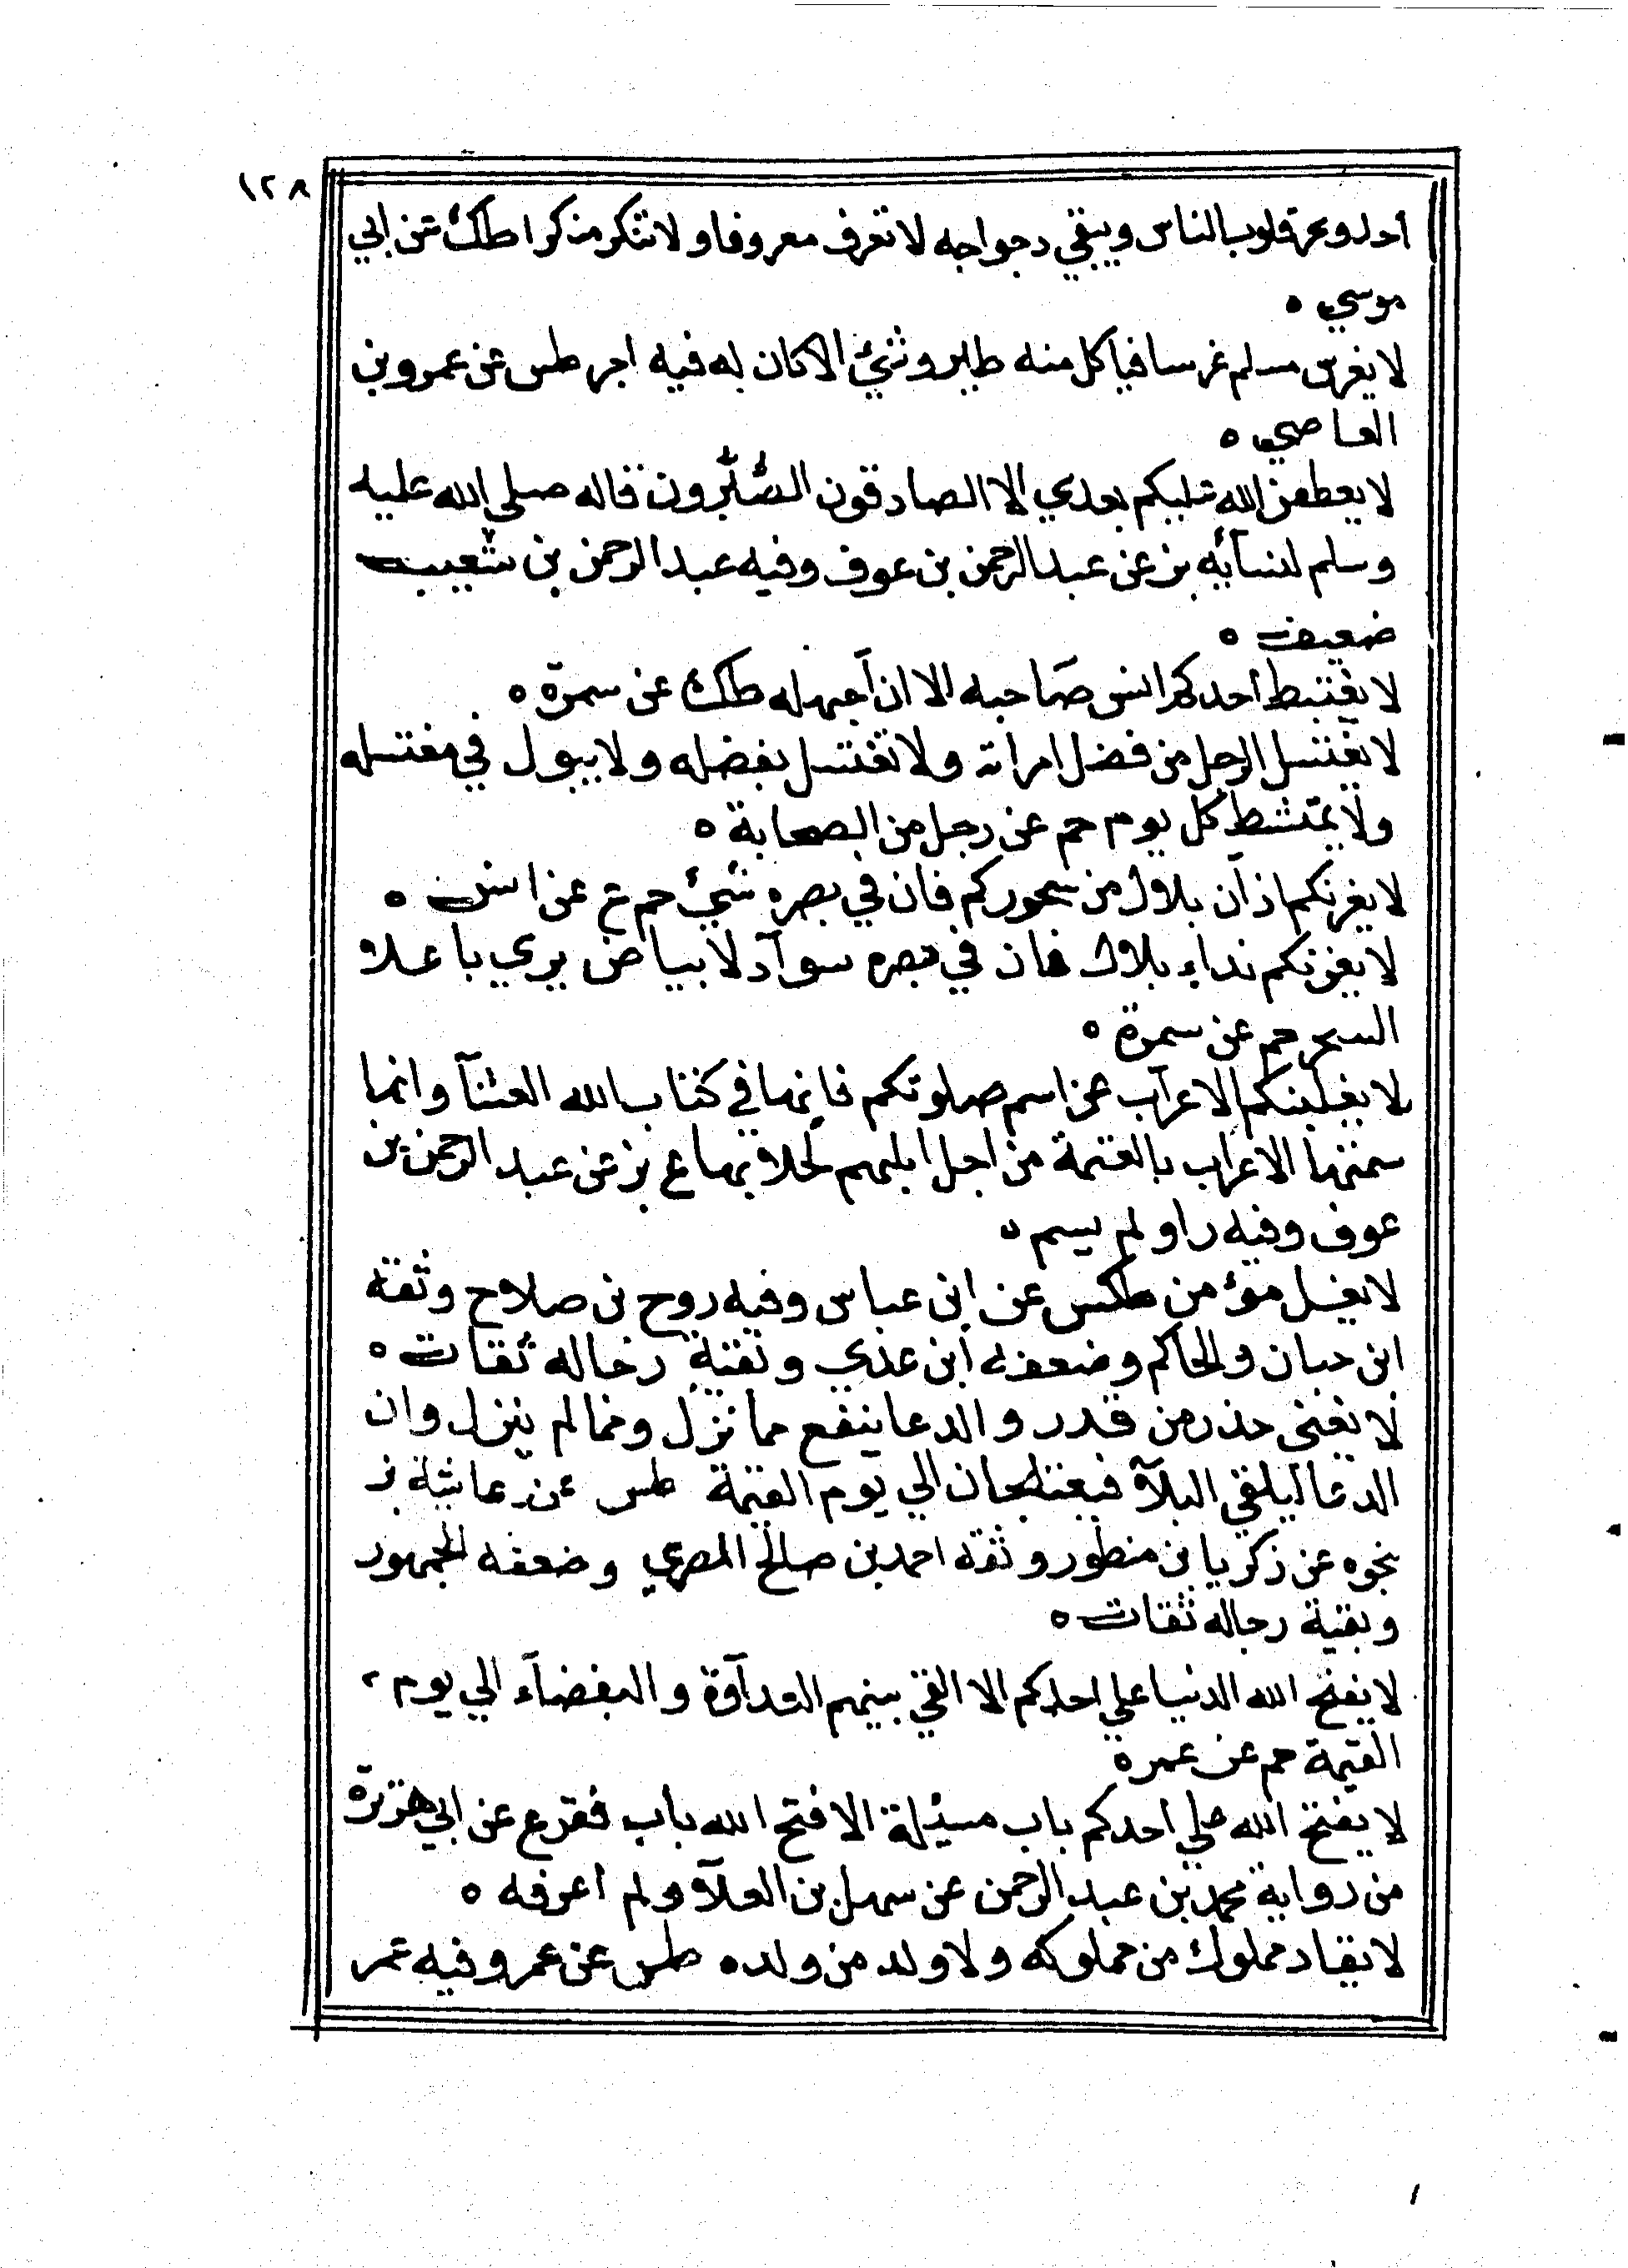 ١٢٨
أحد وعرة قلوب الناس ويبقي دجواجه لا تعرف معروفا ولا تنكر منكرا طك عن ابي
موسي ه
لا يغرس مسلم غرسا فياكل منه طاير وشئ الا كان له فيه اجر طس عن عمرو بن
العاصي ه
لا يعطفن الله عليكم بعدي الا الصادقون الصُّبَّرون قاله صلي الله عليه
وسلم لنسآئه بز عن عبد الرحمن بن عوف وفيه عبد الرحمن بن شعيب
ضعيف ه
لا يغتبط أحدكم انس صَاحبه الا ان آجهله طك عن سمرة ه
لا يغتسل الرجل من فضل امراته ولا تغتسل بفضله ولا يبول في مغتسله
ولا يمتشط كل يوم حم عن رجل من الصحابة ه
لا يغرنكم اذآن بلال من سحوركم فان في بصره شئ حم ع عن انس ه
لا يغرنكم نداء بلال فان في بصره سوآد لا بياض يري باعلا
السحر حم عن سمرة ه
لا يغلبنكم الاعرآب عن اسم صلوتكم فانها في كتاب الله العشآ وانما
سمتها الاعراب بالعتمة من اجل ابلهم لحلابها ع بز عن عبد الرحمن بن
عوف وفيه راو لم يسم ه
لا يغل مؤمن طكس عن ابن عباس وفيه روح بن صلاح وثقه
ابن حبان والحاكم وضعفه ابن عدي وبقية رجاله ثقات ه
لا يغني حذر من قدر والدعا ينفع مما نزل ومما لم ينزل وان
الدعا ليلقي البلآ فيعتلجان الي يوم القيمة طس عن عايشة بز
نحوه عن زكريا بن منظور وثقه احمد بن صالح المصري وضعفه الجمهور
وبقية رجاله ثقات ه
لا يفتح الله الدنيا علي احدكم الا القي بينهم العدآوة والبغضآء الي يوم
القيمة حم عن عمر ه
لا يفتح الله علي احدكم باب مسئلة الا فتح الله باب فقر ع عن ابي هريرة
من رواية محمد بن عبد الرحمن عن سهل بن العلآ ولم أعرفه ه
لا يقاد مملوك من مملوكه ولا ولد من ولده طس عن عمر وفيه عمر